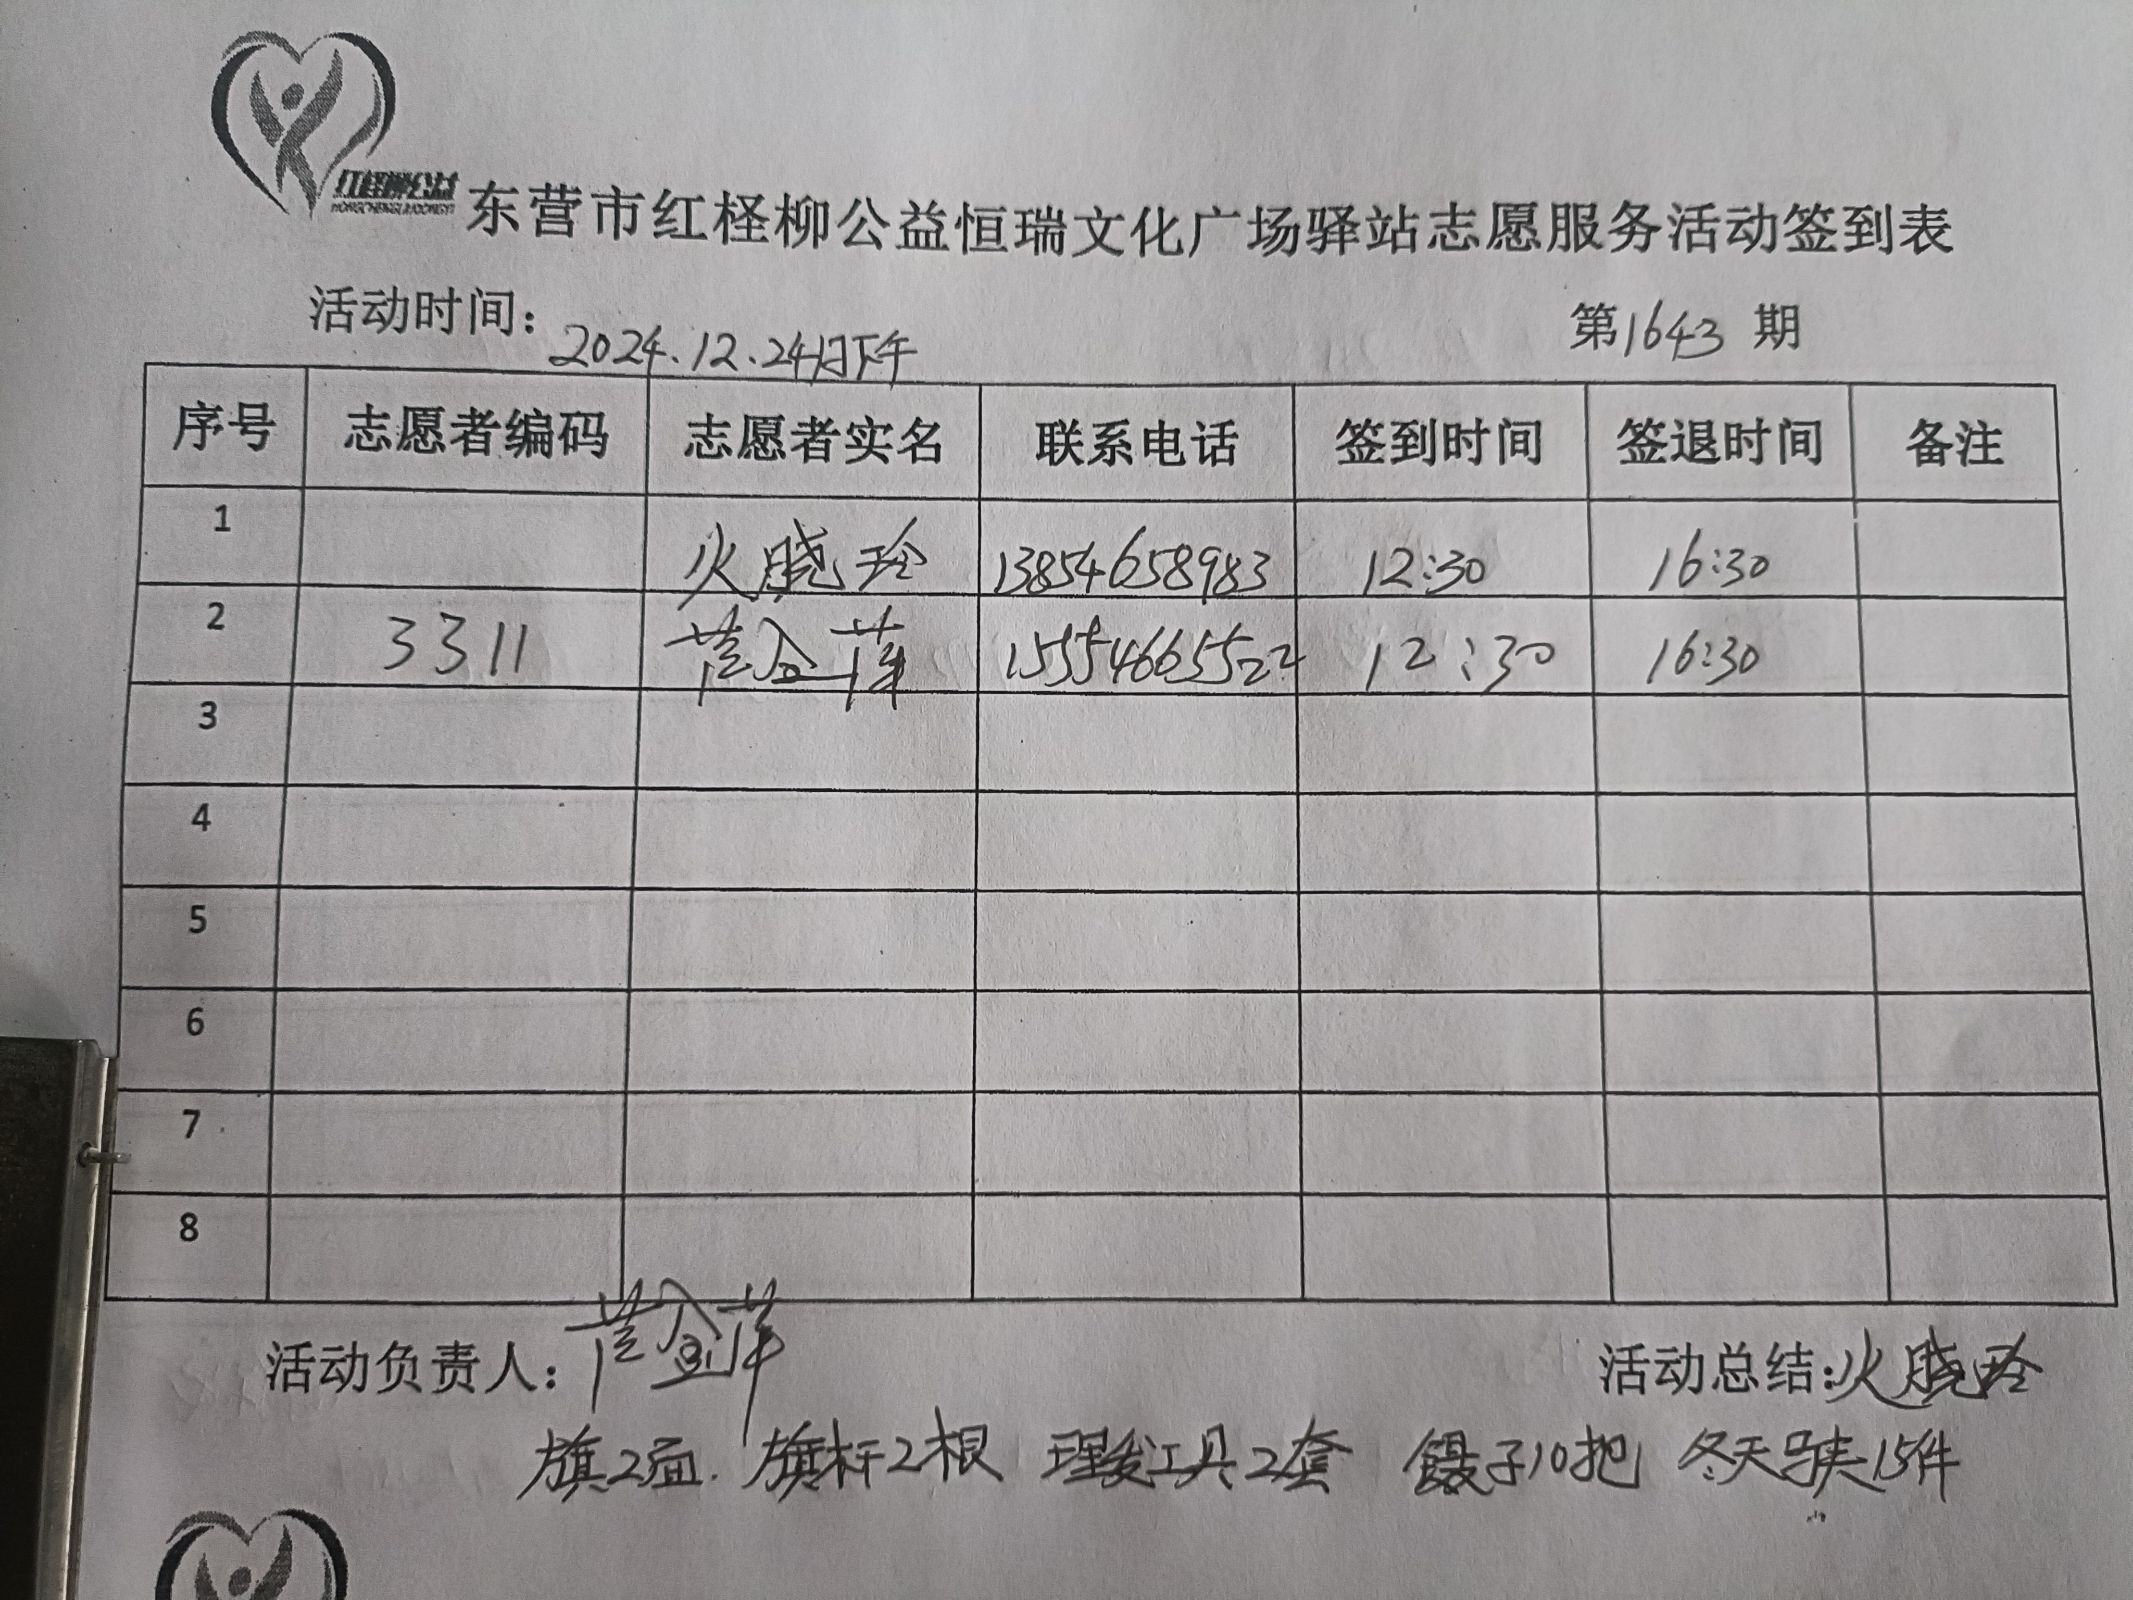 红柽柳公益
HONGCHENGLIUGONGYI
东营市红柽柳公益恒瑞文化广场驿站志愿服务活动签到表
活动时间：2024.12.24日下午 第1643期
序号 志愿者编码 志愿者实名 联系电话 签到时间 签退时间 备注
1 火晓玲 13854658983 12:30 16:30
2 3311 黄金莲 15554665522 12:30 16:30
3
4
5
6
7
8
活动负责人： 活动总结：火晓玲
旗2面. 旗杆2根 理发工具2套 镊子10把 冬天马夹15件